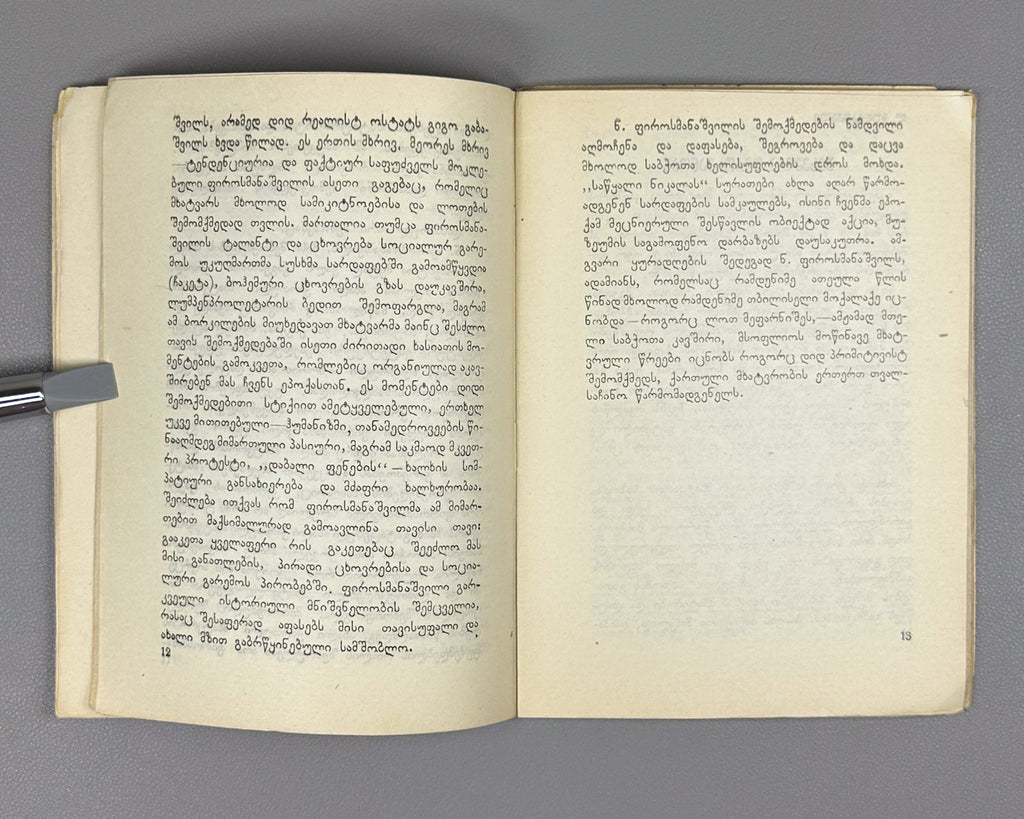 შვილს, არამედ დიდ რეალისტ ოსტატს გიგო გაბა-
შვილს ხვდა წილად. ეს ერთის მხრივ, მეორეს მხრივ
—ტენდენციურია და ფაქტიურ საფუძველს მოკლე-
ბული ფიროსმანაშვილის ასეთი გაგებაც, რომელიც
მხატვარს მხოლოდ სამიკიტნოებისა და ლოთების
შემომქმედად თვლის. მართალია თუმცა ფიროსმანა-
შვილის ტალანტი და ცხოვრება სოციალურ გარე-
მოს უკუღმართმა სუსხმა სარდაფებში გამოამწყვდია
(ჩაკეტა), ბოჰემური ცხოვრების გზას დაუკავშირა,
ლუმპენპროლეტარის ბედით შემოფარგლა, მაგრამ
ამ ბორკილების მიუხედავათ მხატვარმა მაინც შესძლო
თავის შემოქმედებაში ისეთი ძირითადი ხასიათის მო-
მენტების გამოკვეთა, რომლებიც ორგანიულად აკავ-
შირებენ მას ჩვენს ეპოქასთან. ეს მომენტები დიდი
შემოქმედებითი სტიქიით ამეტყველებული, ერთხელ
უკვე მითითებული—ჰუმანიზმი, თანამედროვეების წი-
ნააღმდეგ მიმართული პასიური, მაგრამ საკმაოდ მკვეთ-
რი პროტესტი, ,,დაბალი ფენების“ — ხალხის სიმ-
პატიური განსახიერება და მძაფრი ხალხურობაა.
შეიძლება ითქვას რომ ფიროსმანაშვილმა ამ მიმარ-
თებით მაქსიმალურად გამოავლინა თავისი თავი:
გააკეთა ყველაფერი რის გაკეთებაც შეეძლო მას
მისი განათლების, პირადი ცხოვრებისა და სოცია-
ლური გარემოს პირობებში. ფიროსმანაშვილი გარ-
კვეული ისტორიული მნიშვნელობის შემცველია,
რასაც შესაფერად აფასებს მისი თავისუფალი და
ახალი მზით გაბრწყინებული სამშობლო.
12
ნ. ფიროსმანაშვილის შემოქმედების ნამდვილი
აღმოჩენა და დაფასება, შეგროვება და დაცვა
მხოლოდ საბჭოთა ხელისუფლების დროს მოხდა.
,,საწყალი ნიკალას“ სურათები ახლა აღარ წარმო-
ადგენენ სარდაფების სამკაულებს, ისინი ჩვენმა ეპო-
ქამ მეცნიერული შესწავლის ობიექტად აქცია, მუ-
ზეუმის საგამოფენო დარბაზებს დაუსაკუთრა. ამ-
გვარი ყურადღების შედეგად ნ. ფიროსმანაშვილს,
ადამიანს, რომელსაც რამდენიმე ათეული წლის
წინად მხოლოდ რამდენიმე თბილისელი მოქალაქე იც-
ნობდა—როგორც ლოთ მეფარნიშეს,—ამჟამად მთე-
ლი საბჭოთა კავშირი, მსოფლიოს მოწინავე მხატ-
ვრული წრეები იცნობს როგორც დიდ პრიმიტივისტ
შემომქმედს, ქართული მხატვრობის ერთერთ თვალ-
საჩანო წარმომადგენელს.
13